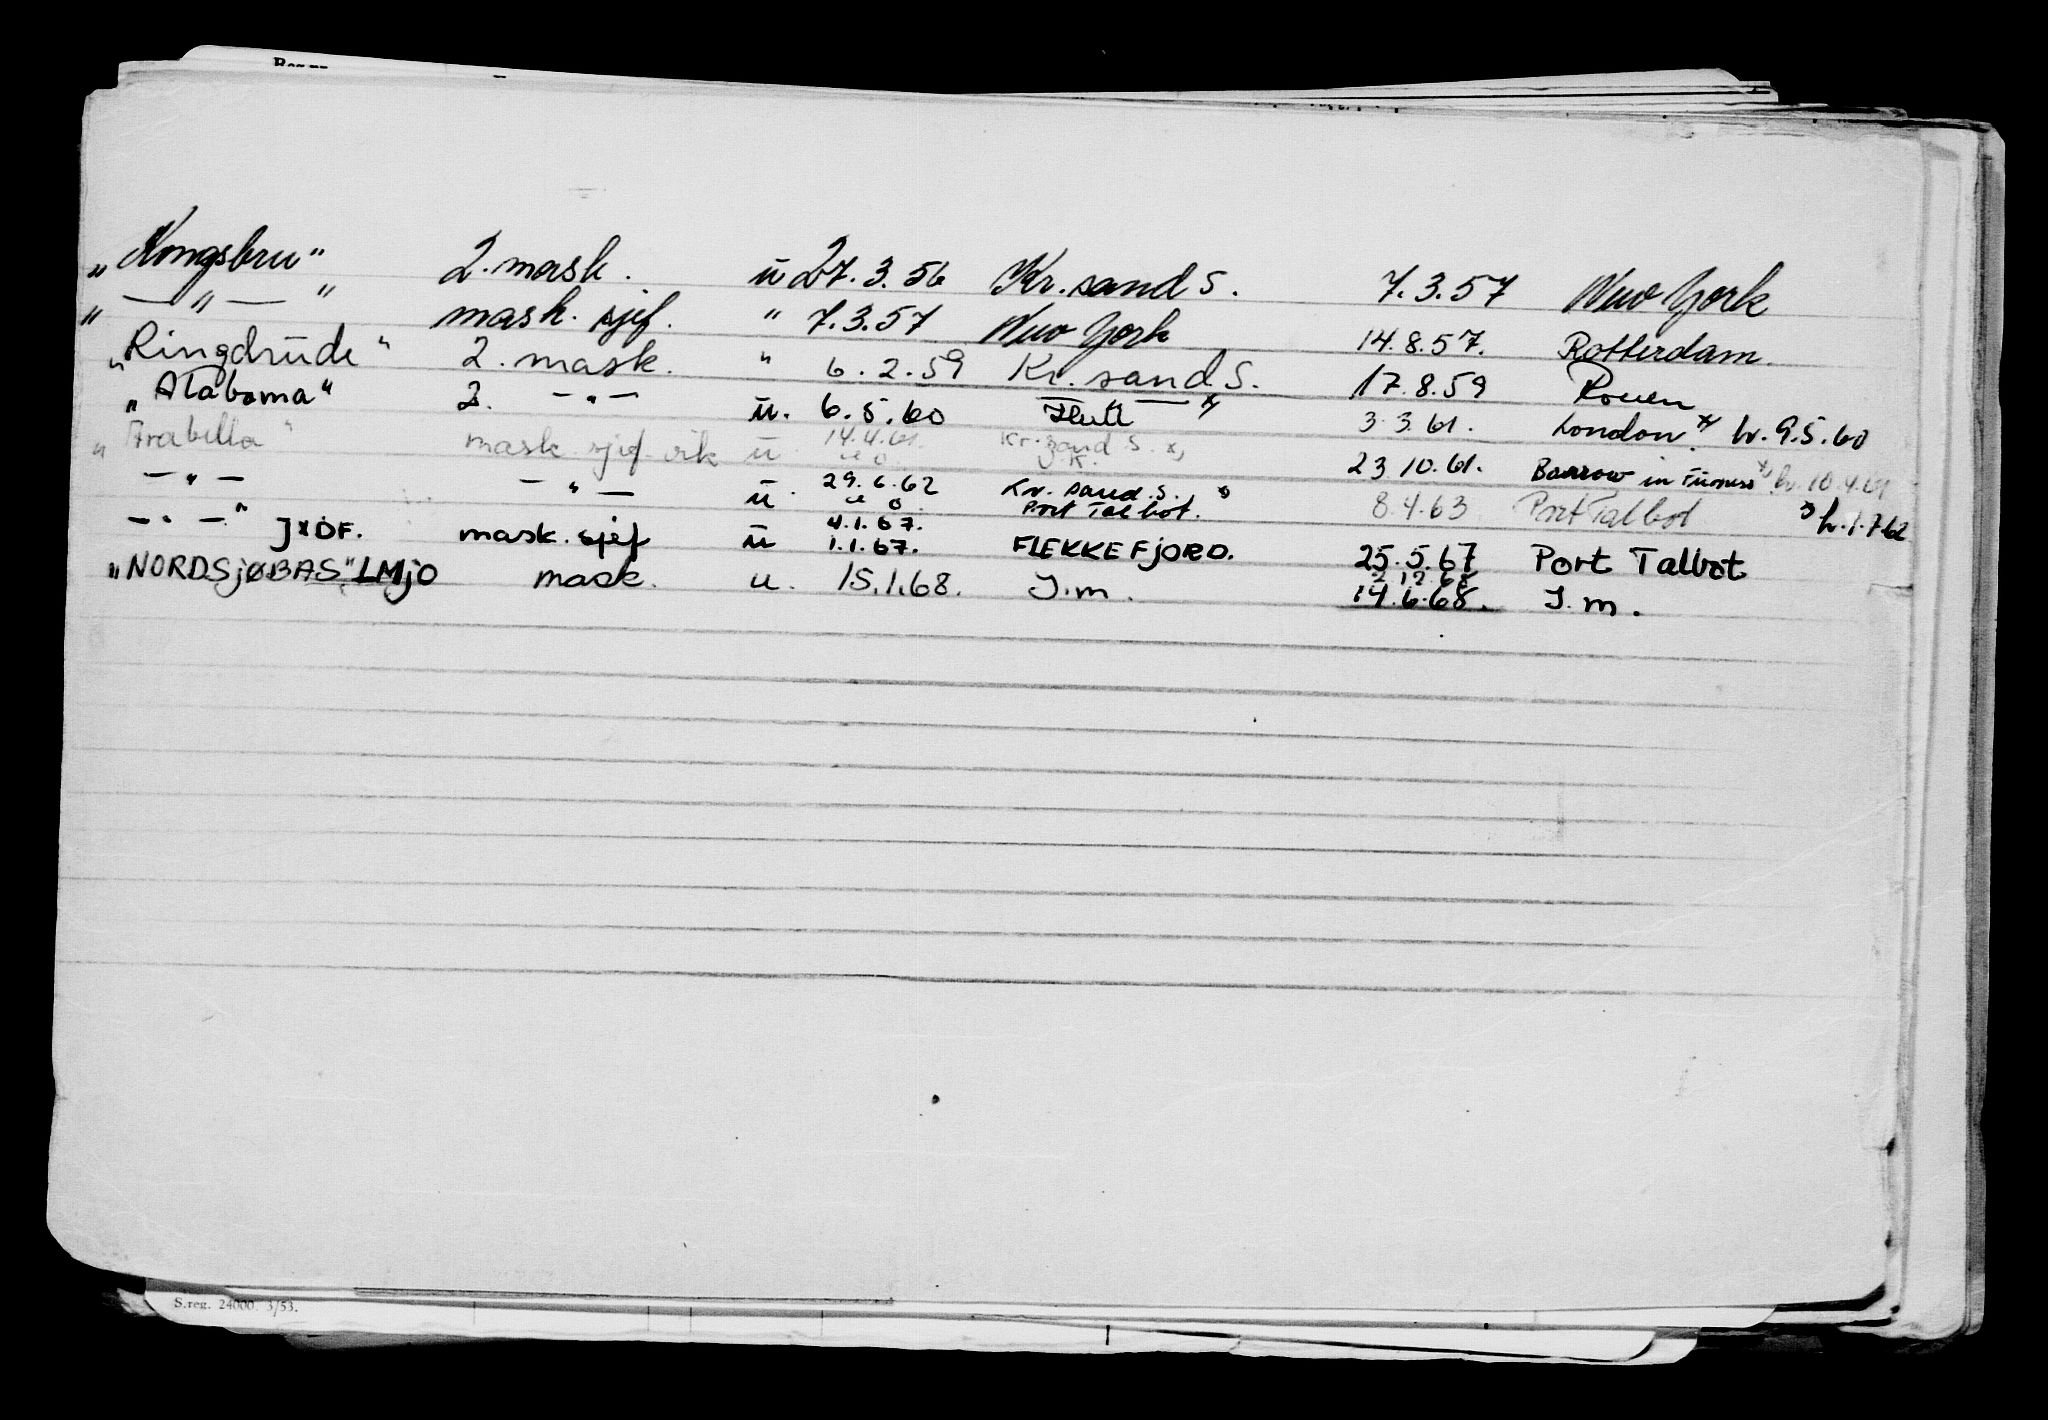 „Kongsbru" 2. mask. u 27.3.56 Kr.sand S. 7.3.57 New York
„ — " — " mask. sjef. " 7.3.57 New York 14.8.57. Rotterdam.
„Ringdrude" 2. mask. " 6.2.59 Kr. sand S. 17.8.59 Rouen
„Alabama" 2. — " — u. 6.5.60 x) 3.3.61. London. x) h. 9.5.60
„Arabella" mask sjef vik u 14.4.61. Kr.sand S. x) 23.10.61. Barrow in Furness x) h. 10.4.61
— " — — " — u. 29.6.62 Kr. sand. S. 8.4.63 Port Talbot h. 1.7.62
Port Talbot.
4.1.67.
— " — " JXDF. mask. sjef u 1.1.67. FLEKKEFJORD. 25.5.67 Port Talbot
2.12.68
„NORDSJØBAS" LMJO mask. u. 15.1.68. I.m. 14.6.68. I.m.
S.reg. 24000. 3/53.